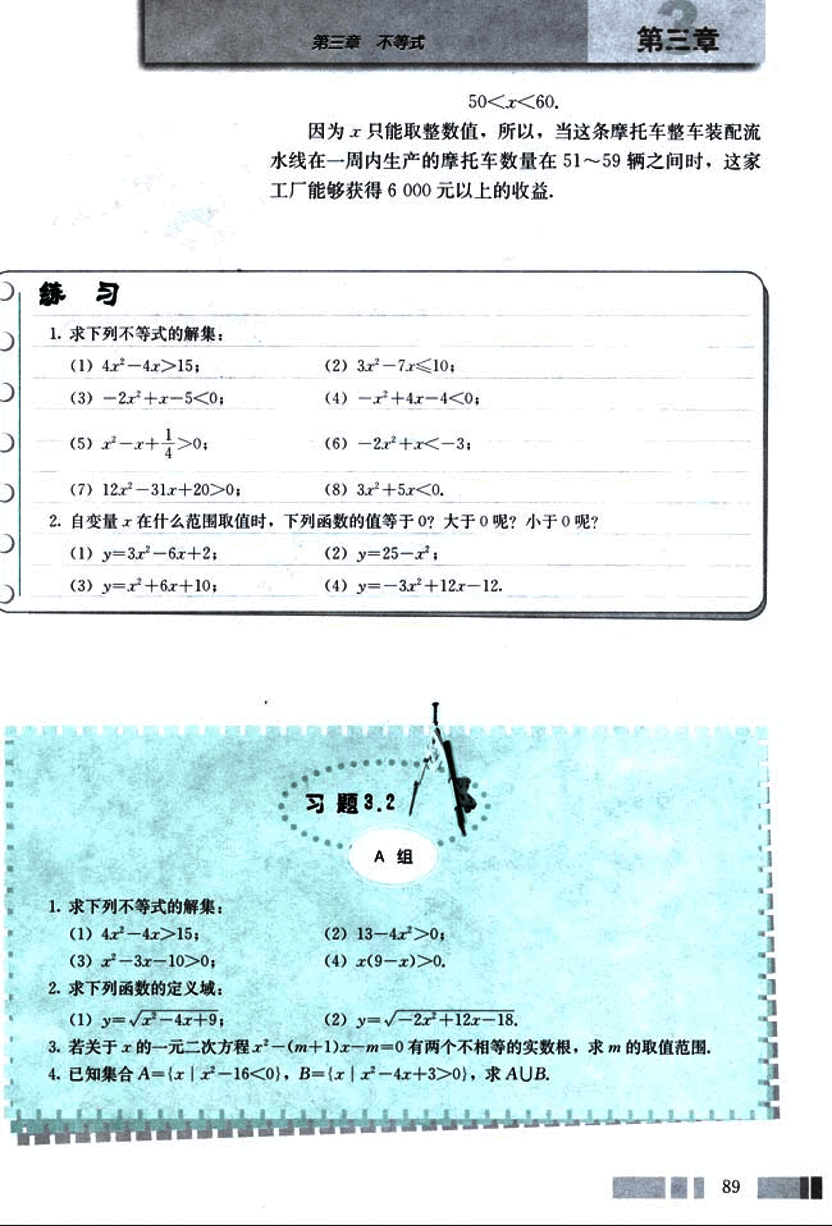 第三章 不等式
第三章
50<x<60.
因为 x 只能取整数值，所以，当这条摩托车整车装配流
水线在一周内生产的摩托车数量在 51～59 辆之间时，这家
工厂能够获得 6 000 元以上的收益.
练 习
1. 求下列不等式的解集：
(1) 4x²－4x>15; (2) 3x²－7x≤10;
(3) －2x²＋x－5<0; (4) －x²＋4x－4<0;
(5) x²－x＋1/4>0; (6) －2x²＋x<－3;
(7) 12x²－31x＋20>0; (8) 3x²＋5x<0.
2. 自变量 x 在什么范围取值时，下列函数的值等于 0？大于 0 呢？小于 0 呢？
(1) y=3x²－6x＋2; (2) y=25－x²;
(3) y=x²＋6x＋10; (4) y=－3x²＋12x－12.
习 题 3.2
A 组
1. 求下列不等式的解集：
(1) 4x²－4x>15; (2) 13－4x²>0;
(3) x²－3x－10>0; (4) x(9－x)>0.
2. 求下列函数的定义域：
(1) y=√(x²－4x＋9); (2) y=√(－2x²＋12x－18).
3. 若关于 x 的一元二次方程 x²－(m＋1)x－m=0 有两个不相等的实数根，求 m 的取值范围.
4. 已知集合 A={x | x²－16<0}，B={x | x²－4x＋3>0}，求 A∪B.
89